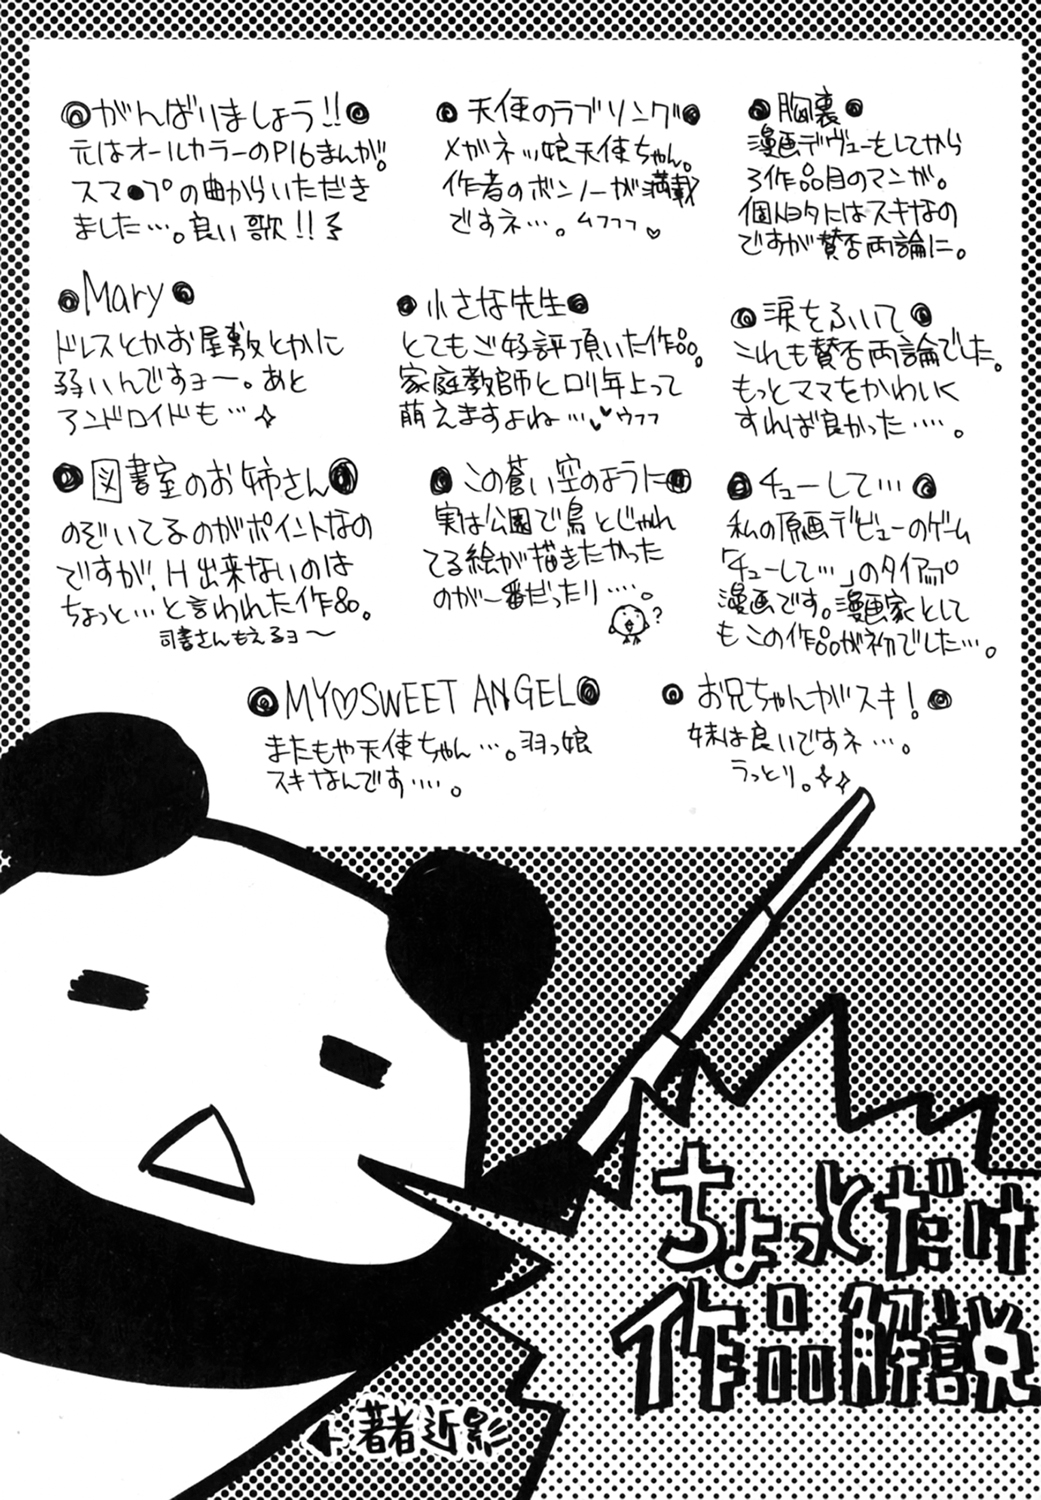 胸裏
漫画デヴューをしてから
3作品目のマンガ。
個人的にはスキなの
ですが賛否両論に。
天使のラブソング
メガネッ娘天使ちゃん。
作者のボンノーが満載
ですネ…。ムフフフ♡
がんばりましょう!!
元はオールカラーのP16まんが。
スマ●プの曲からいただき
ました…。良い歌!!
涙をふいて
これも賛否両論でした。
もっとママをかわいく
すれば良かった‥‥。
小さな先生
とてもご好評頂いた作品。
家庭教師とロリ年上って
萌えますよね…♥ウフフ
Mary
ドレスとかお屋敷とかに
弱いんですョー。あと
アンドロイドも…
チューして…
私の原画デビューのゲーム
「チューして…」のタイアップ
漫画です。漫画家として
もこの作品が初でした…。
この蒼い空のように
実は公園で鳥とじゃれ
てる絵が描きたかった
のが一番だったり‥‥。
?
図書室のお姉さん
のぞいてるのがポイントなの
ですが!H出来ないのは
ちょっと…と言われた作品。
司書さんもえるヨ〜
お兄ちゃんがスキ!
妹は良いですネ…。
うっとり。
MY♡SWEET ANGEL
またもや天使ちゃん…。羽っ娘
スキなんです‥‥。
ちょっとだけ
作品解説
著者近影